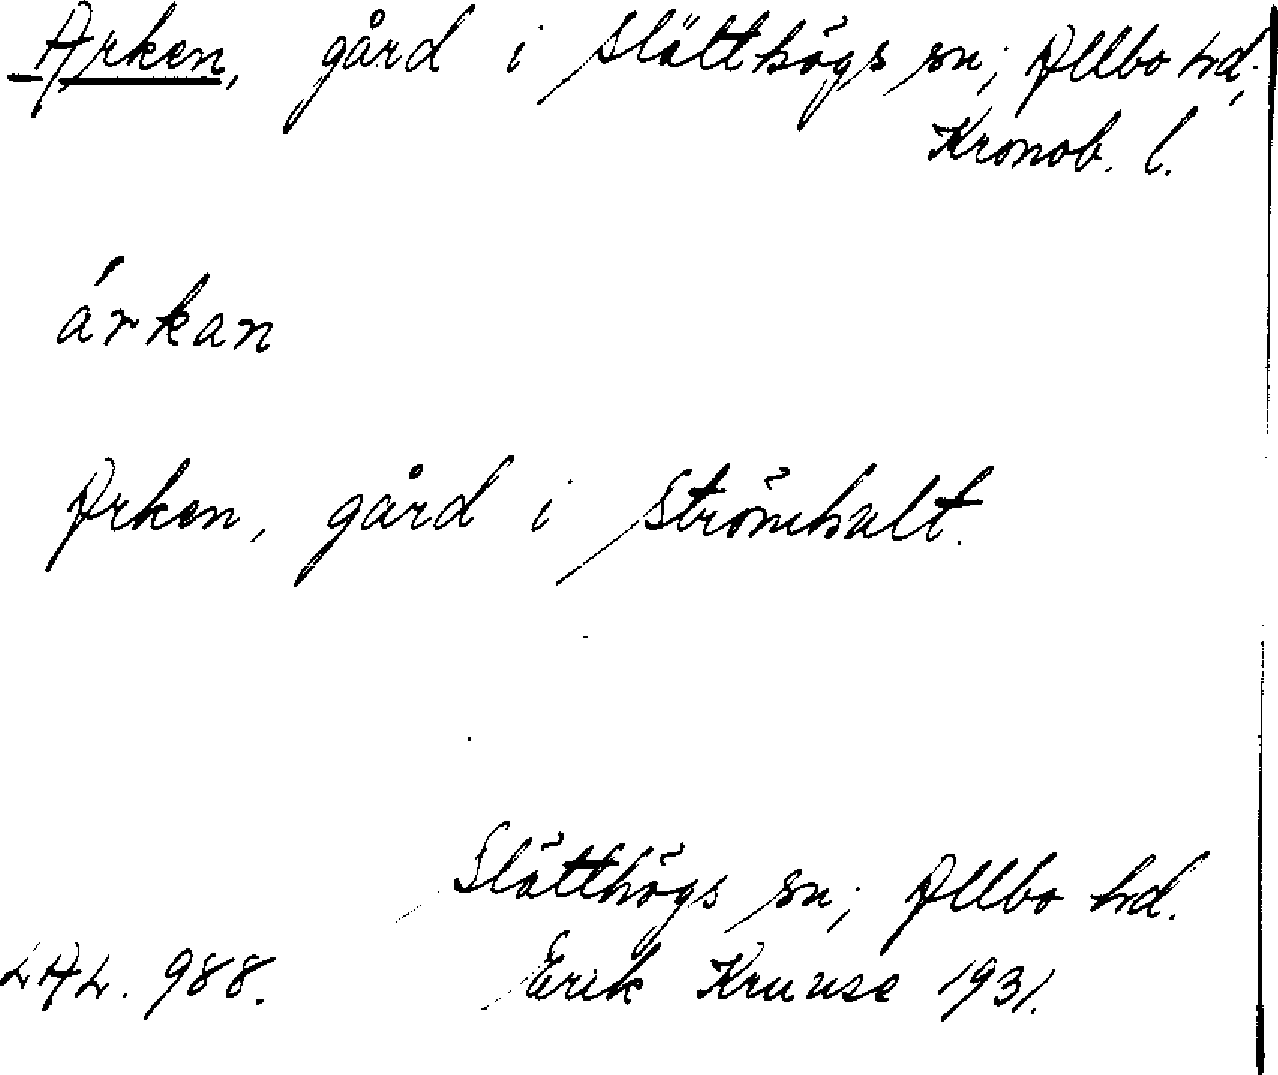 Arken, gård i Slätthögs sn; Allbo hd.,
Kronob. l.
árkan
Arken, gård i Strömhult.
Slätthögs sn; Allbo hd.
LAL. 988. Erik Kruuse 1931.